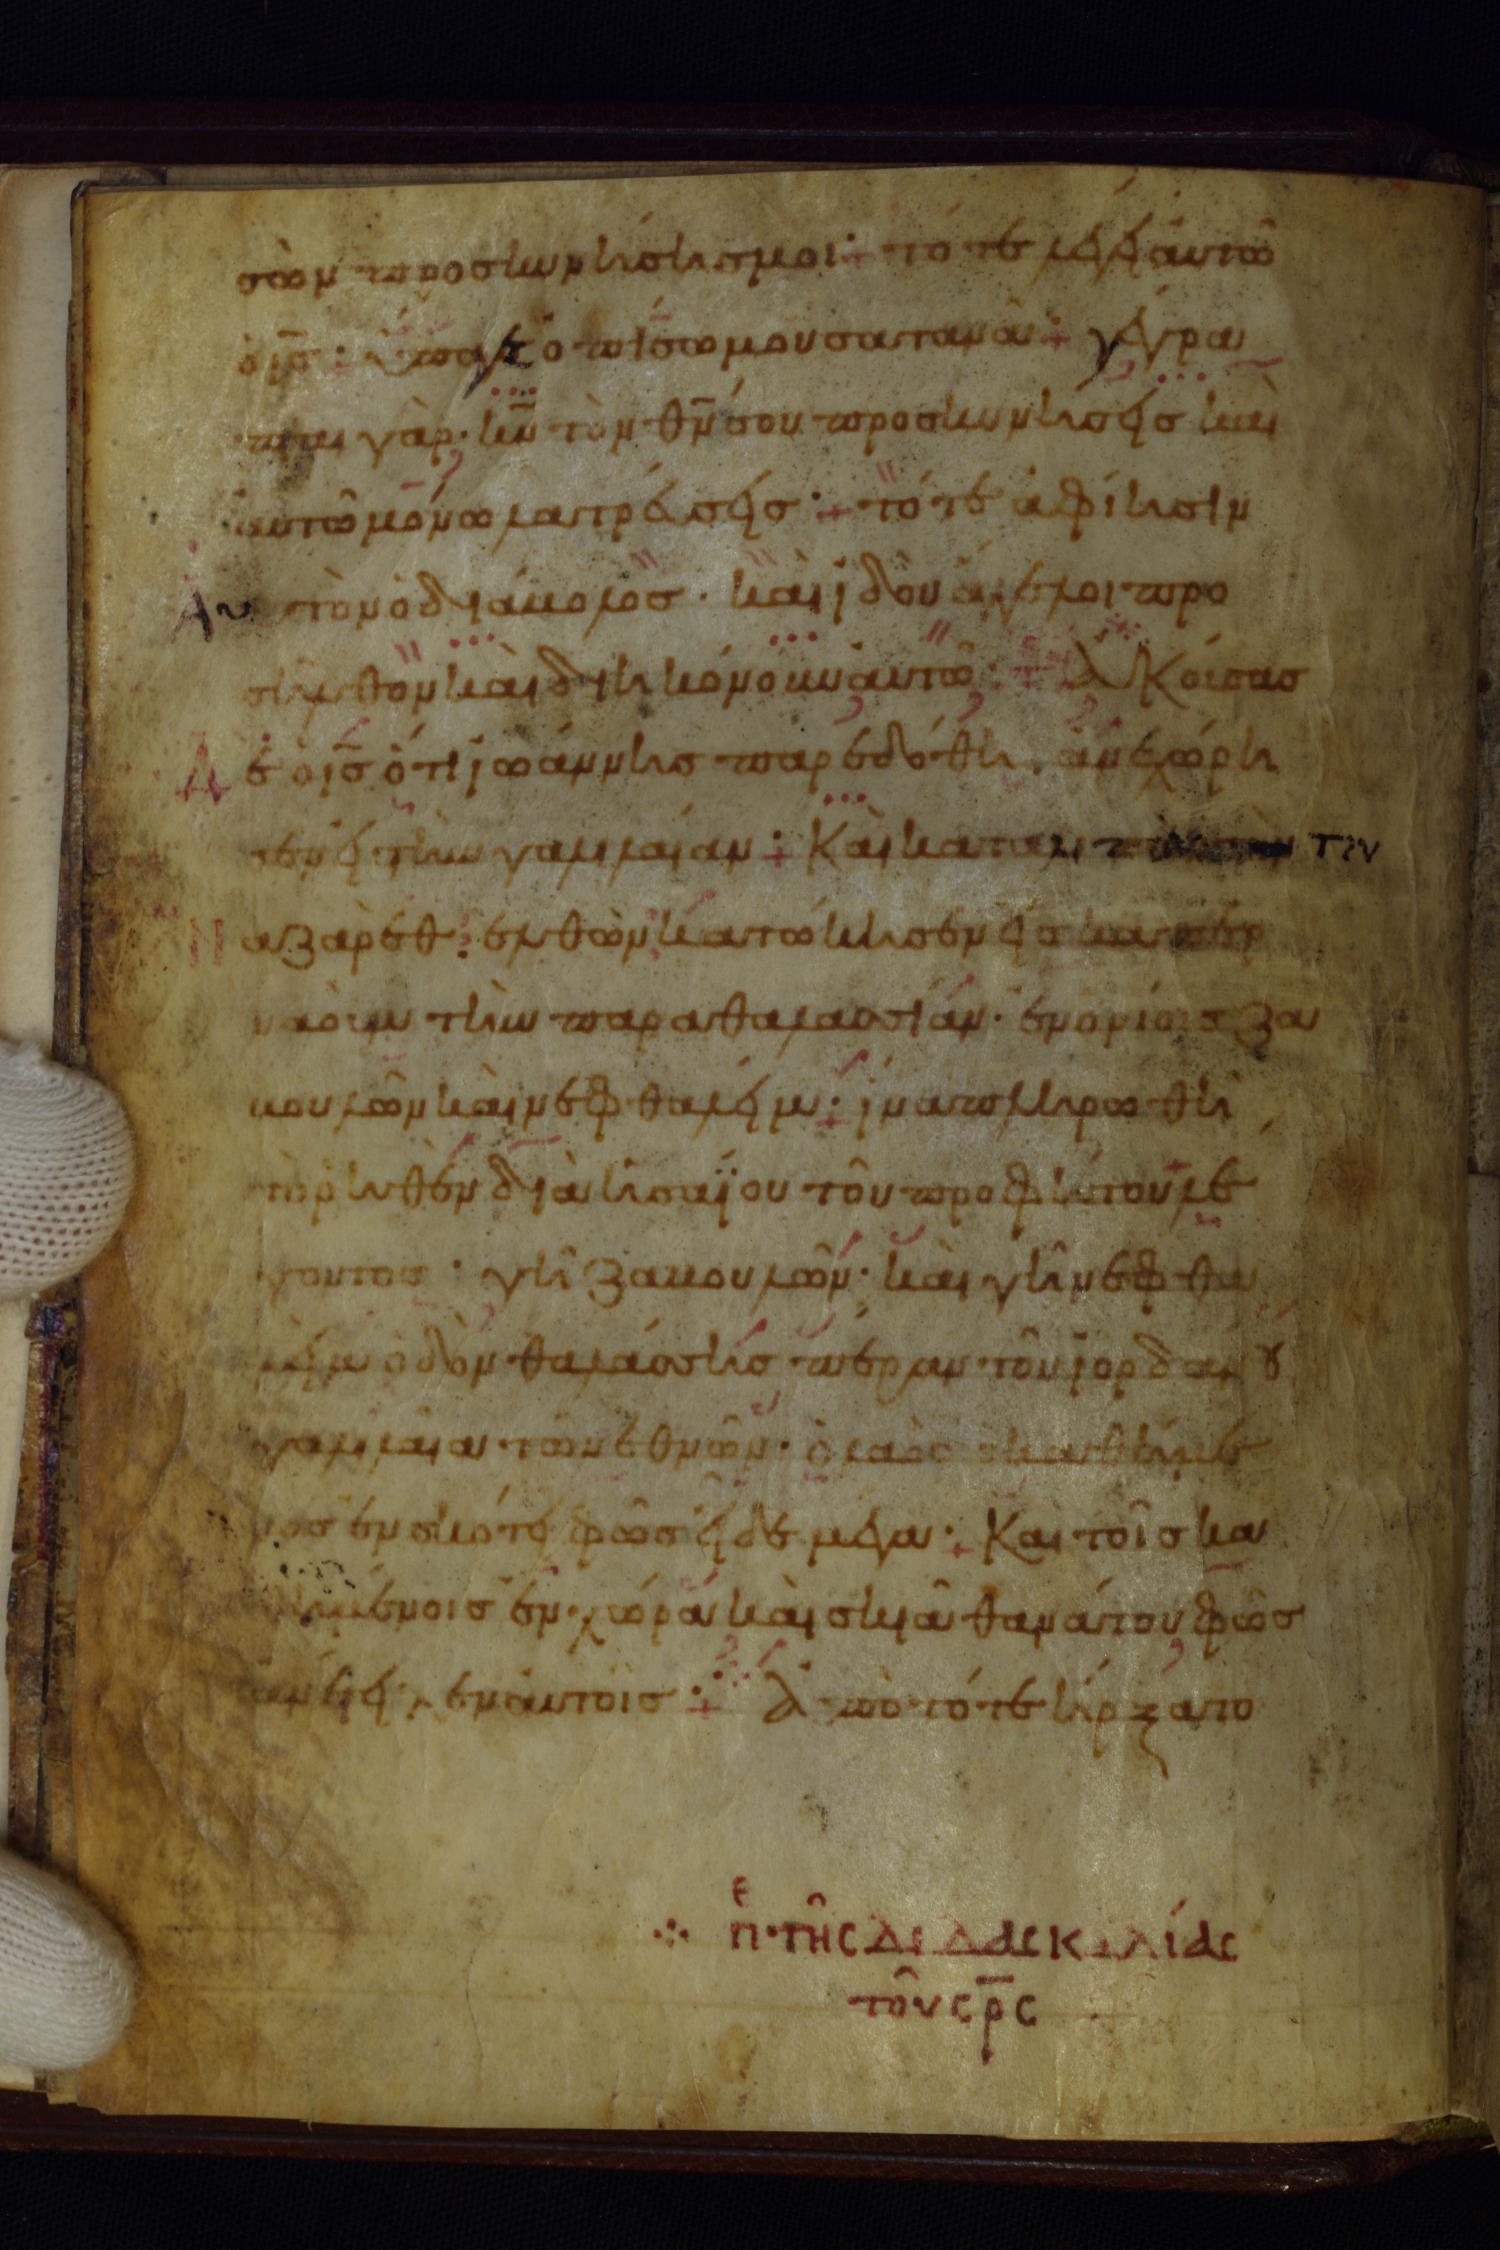 σὼν προσκυνήσησμοι· τότε λέγει ἀυτῶ
ὁ ι̅ς̅· ὕπαγε ὀπίσω μου σατανᾶ· γέγρα
πται γὰρ· κ̅ν̅ τὸν θ̅ν̅ σου προσκυνήσεις καὶ
ἀυτῶ μόνω λατρέυσεις· τότε ἀφίησιν
Αυτὸν ὁ διάβολος· καὶ ἰδοὺ ἄγγελοι προ
σῆλθον καὶ διηκόνουν ἀυτῶ· Ἀκούσας
Δὲ ὁ ι̅ς̅ ὅτι ἰωάννης παρεδόθη, ἀνεχώρη
σεν εἰς τὴν γαλιλαίαν· Καὶ καταλιπὼν τὴν
Ναζαρὲθ· ἐλθὼν κατώκησεν εἰς καπερ
ναοὺμ τὴν παραθαλασσίαν· ἐν ὁρίοις ζα
βουλὼν καὶ νεφθαλείμ· ἵνα πληρωθῆ
τὸ ῥηθὲν διὰ ἡσαΐου τοῦ προφήτου λέ
γοντος· γῆ ζαβουλὼν· καὶ γῆ νεφθα
λεὶμ ὁδὸν θαλάσσης πέραν τοῦ ἰορδάνου
γαλιλαία τῶν ἐθνῶν· ὁ λαὸς ὁ καθήμε
νος ἐν σκότει φῶς εἶδε μέγα· Καὶ τοῖς κα
θημένοις ἐν χώρα καὶ σκιᾶ θανάτου φῶς
ἀνέτειλεν ἀυτοῖς· Ἀπὸ τότε ἤρξατο
ε π τῆς διδασκαλίας
τοῦ σ̅ρ̅ς̅